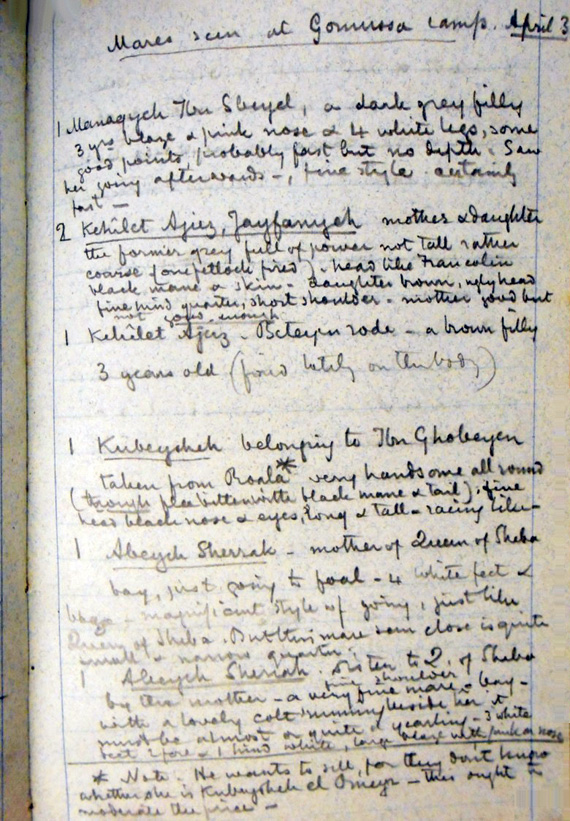 Mares seen at Gomussa camp. April 3
1 Managyeh Ibn Sbeyel, a dark grey filly
3 yrs blaze & pink nose & 4 white legs, some
good points, probably fast but no depth. Saw
her going afterwards -, fine style certainly
fast —
2 Kehilet Ajuz, Jayfanyeh mother & daughter
the former grey full of power not tall rather
coarse (one fetlock fired); head like Francolin
black mane & skin - daughter brown, ugly head
fine hind quarter, short shoulder - mother good but
not good enough
1 Kehilet Ajuz - Beteyen rode - a brown filly
3 years old (fired lately on the body)
1 Kubeysheh belonging to Ibn Ghobeyen
taken from Roala * very handsome all round
(though flea bitten with black mane & tail); fine
head black nose & eyes, long & tall - racing like -
1 Abeyeh Sherrak - mother of Queen of Sheba
bay, just going to foal - 4 white feet &
- magnificent style of going, just like
Queen of Sheba. But this mare seen close is quite
small & narrow quarter.
1 Abeyeh Sherrak. Sister to Q. of Sheba
fine shoulder
by the mother - a very fine mare - bay -
with a lovely colt running beside her, it
must be almost or quite a yearling - 3 white
feet 2 fore & 1 hind white, large blaze with pink on nose
* Note. He wants to sell, for they don't know
whether she is Kubeysheh el Omeyr - this ought to
moderate the price -